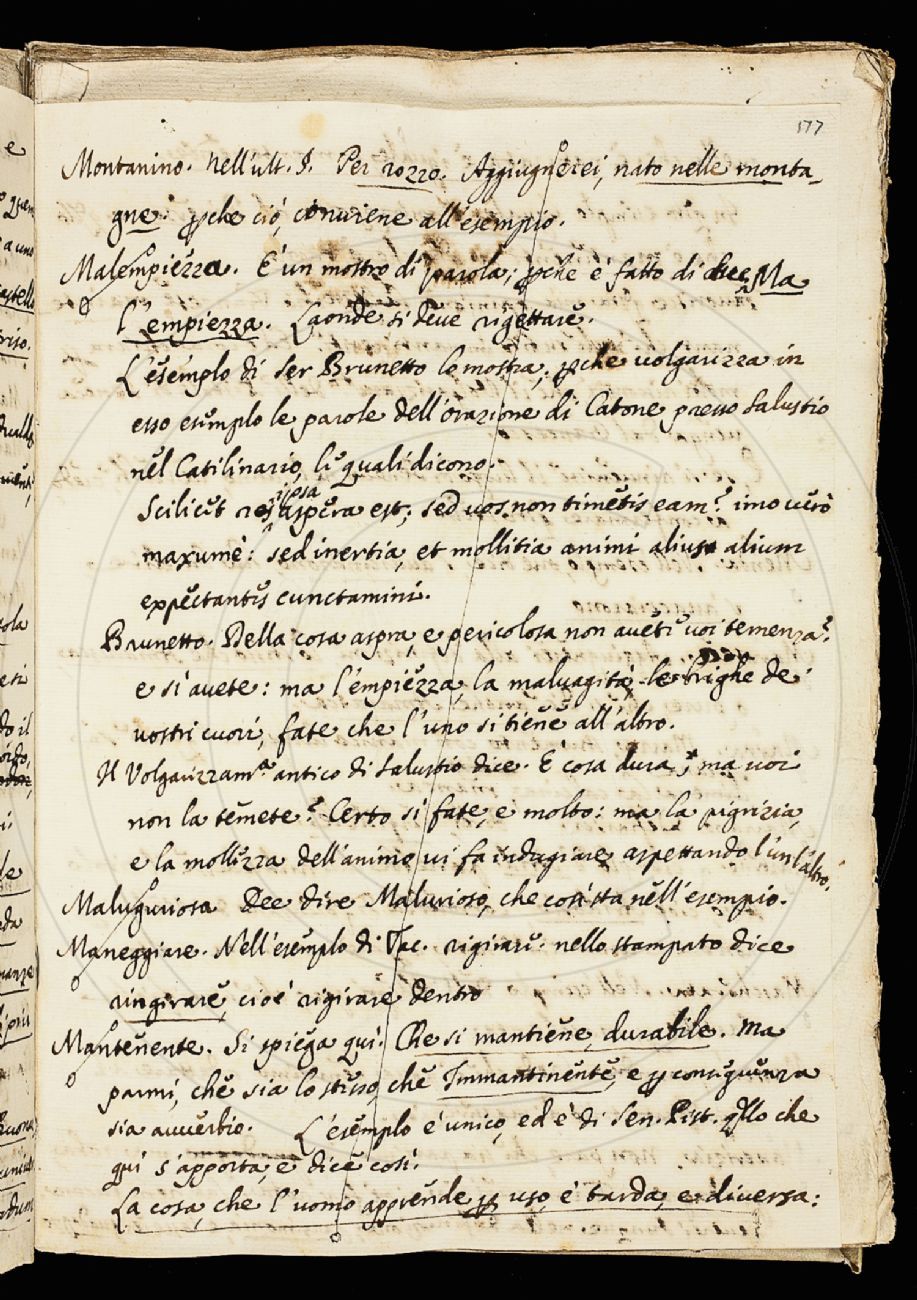 177
Montanino. Nell'ult. §. Per rozzo. Aggiugnerei, nato nelle monta-
gne. pche ciò, conviene all'esempio.
Malempiezza. E' un mostro di parola; pche è fatto di due, Ma
l'empiezza. Laonde si deve rigettare.
L'esemplo di Ser Brunetto lo mostra, pche volgarizza in
esso esemplo le parole dell'orazione di Catone presso Salustio
nel Catilinario, le quali dicono.
Scilicet res ipsa aspera est; sed vos non timetis eam? imo verò
maxumè: sed inertia, et mollitia animi alius alium
expectantes cunctamini.
Brunetto. Della cosa aspra, e pericolosa non avete voi temenza?
e sì avete: ma l'empiezza, la malvagità, le brighe de'
vostri cuori, fate che l'uno si tiene all'altro.
Il Volgarizzam.º antico di Salustio dice. E' cosa dura, ma voi
non la temete? Certo sì fate, e molto: ma la pigrizia,
e la mollezza dell'animo vi fa indugiare aspettando l'un l'altro.
Maluguriosa Dee dire Maluriosо, che così sta nell'esempio.
Maneggiare. Nell'esemplo di Tac. rigirare. nello stampato dice
ringirare, cioè rigirare dentro
Mantenente. Si spiega quì. Che si mantiene, durabile. Ma
parmi, che sia lo stesso che Immantinente, e p conseguenza
sia avverbio. L'esemplo è unico, ed è di Sen. Pist. qllo che
quì s'apporta, e dice così.
La cosa, che l'uomo apprende p uso, è tarda, e diversa: